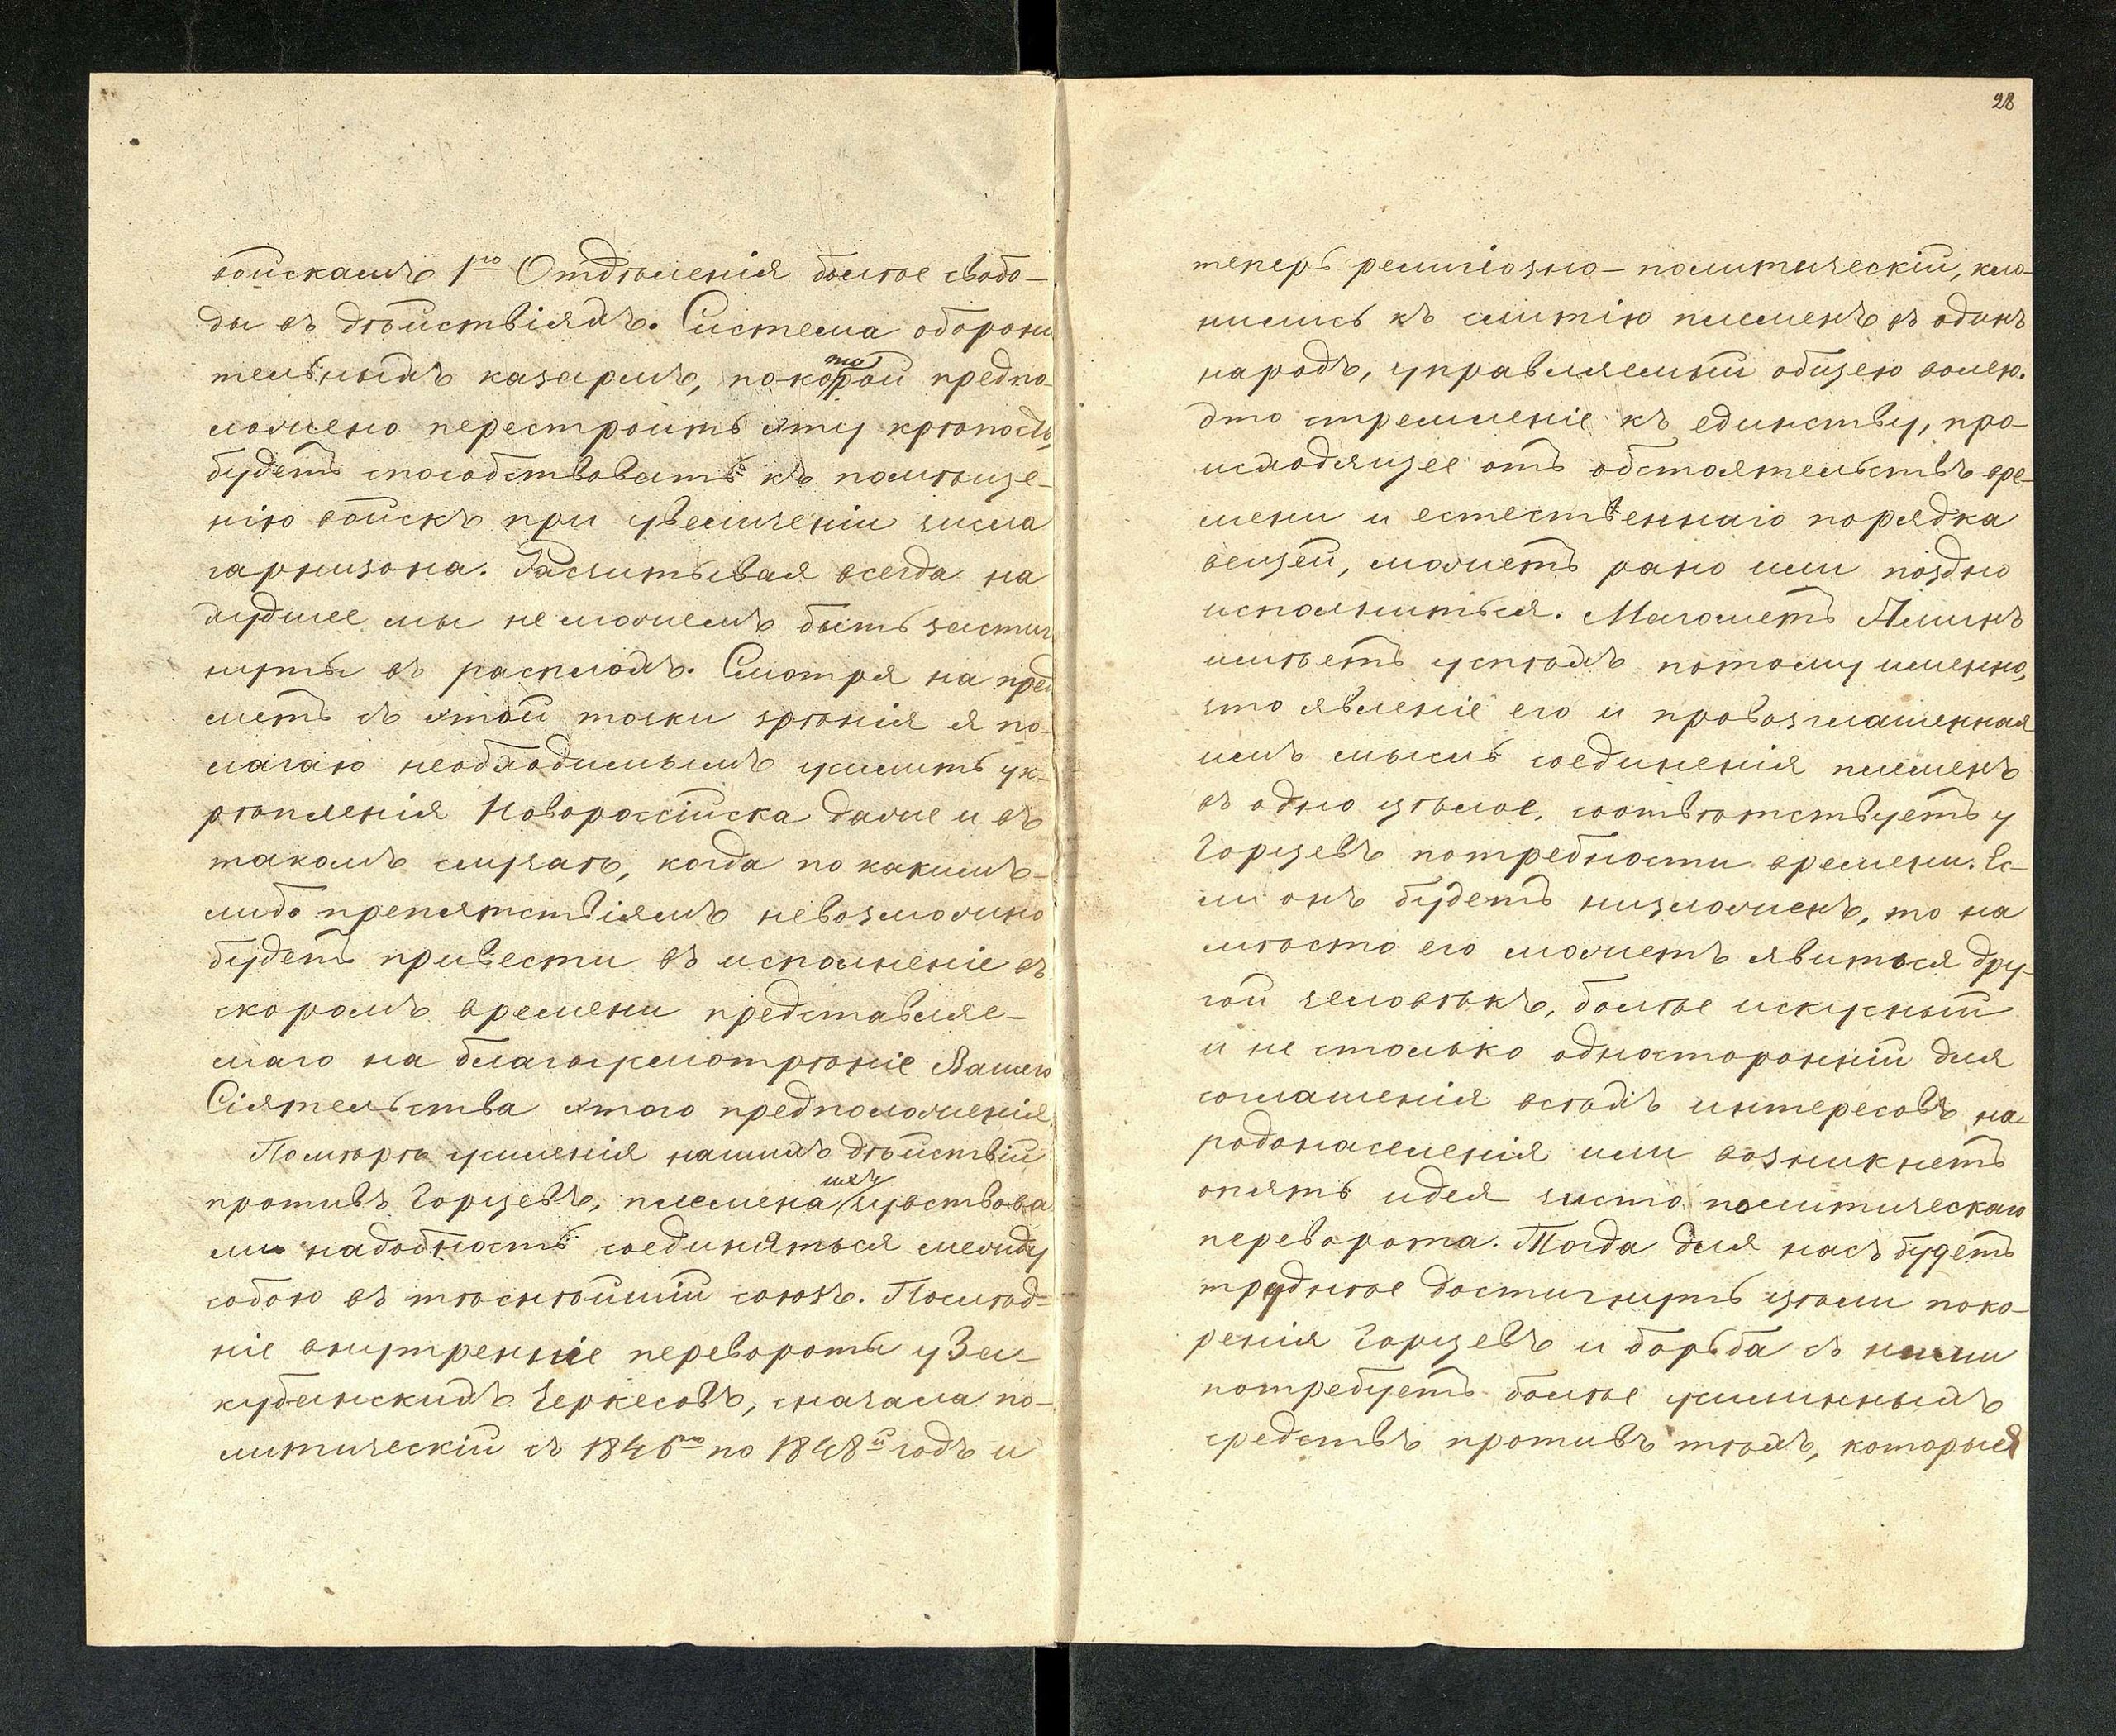 войскамъ 1го Отдѣленія болѣе свобо-
ды въ дѣйствіяхъ. Система оборони
тельныхъ казармъ, по которой предпо-
ложено перестроить эту крѣпость,
будетъ способствовать къ помѣще-
нію войскъ при увеличеніи числа
гарнизона. Расчитывая всегда на
худшее мы не можемъ быть застиг
нуты въ расплохъ. Смотря на пред
метъ съ этой точки зрѣнія я по-
лагаю необходимымъ усилить ук-
рѣпленія Новороссійска даже и въ
такомъ случаѣ, когда по какимъ-
либо препятствіямъ невозможно
будетъ привести въ исполненіе въ
скоромъ времени представляе-
маго на благоусмотрѣніе Вашего
Сіятельства этого предположенія.
По мѣрѣ усиленія нашихъ дѣйствій
противъ Горцевъ, племена ихъ чувствова
ли надобность соединяться между
собою въ тѣснѣйшій союзъ. Послѣд-
ніе внутренніе перевороты у За-
кубанскихъ Черкесовъ, сначала по-
литическій съ 1846го по 1848й годъ и
28
теперь религіозно-политическій, кло-
нились къ слитію племенъ въ одинъ
народъ, управляемый общею волею.
Это стремленіе къ единству, про-
исходящее отъ обстоятельствъ вре-
мени и естественнаго порядка
вещей, можетъ рано или поздно
исполниться. Магометъ Аминъ
имѣетъ успѣхъ потому именно,
что явленіе его и провозглашенная
имъ мысль соединенія племенъ
въ одно цѣлое, соотвѣтствуетъ у
Горцевъ потребности времени. Ес-
ли онъ будетъ низложенъ, то на
мѣсто его можетъ явиться дру-
гой человѣкъ, болѣе искусный
и не столько односторонній для
соглашенія всѣхъ интересовъ на-
родонаселенія или возникнетъ
опять идея чисто политическаго
переворота. Тогда для насъ будетъ
труднѣе достигнуть цѣли поко-
ренія Горцевъ и борьба съ ними
потребуетъ болѣе усиленныхъ
средствъ противъ тѣхъ, которыя